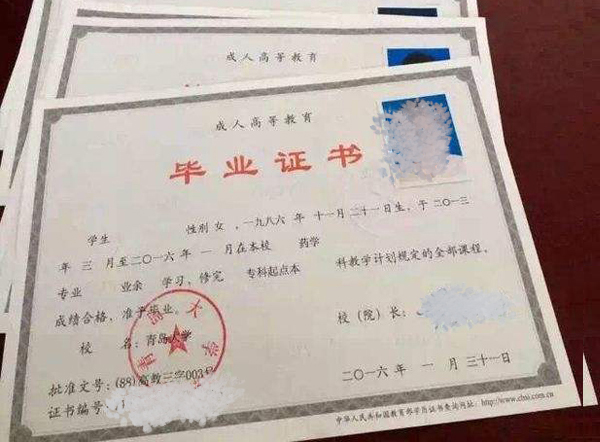 成人高等教育
成人高等教育
毕业证书
学生 性别 女 ,一九八六 年 十一月 二十一日生,于 二〇一三
年 三 月至二〇一六年 一 月在本校 药学
专业 业余 学习,修完 专科起点本 科教学计划规定的全部课程,
成绩合格,准予毕业。
校 名:青岛大学 校(院)长:
批准文号:(88)高教三字003号
证书编号: 二〇一六年 一 月三十一日
中华人民共和国教育部学历证书查询网址:http://www.chsi.com.cn
青岛大学